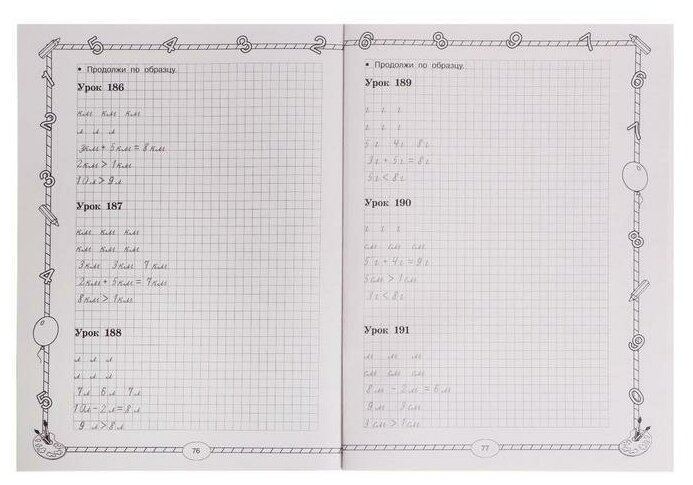 5 4 3 2
• Продолжи по образцу.
Урок 186
км км км
л л л
3км + 5км = 8км
2км > 1км
10л > 9л
Урок 187
км км км
км км км
3км 3км 7км
2км + 5км = 7км
8км > 1км
Урок 188
л л л
л л л
7л 6л 7л
10л - 2л = 8л
9л > 8л
76
1
2
3
4
5
6 8 9 7
• Продолжи по образцу.
Урок 189
г г г
г г г
5г 4г 8г
3г + 5г = 8г
5г < 8г
Урок 190
г г г
см см см
5г + 4г = 9г
3г < 8г
Урок 191
м м м
см см см
8м - 2м = 6м
9м 3см
3см > 1см
77
6
7
8
9
0